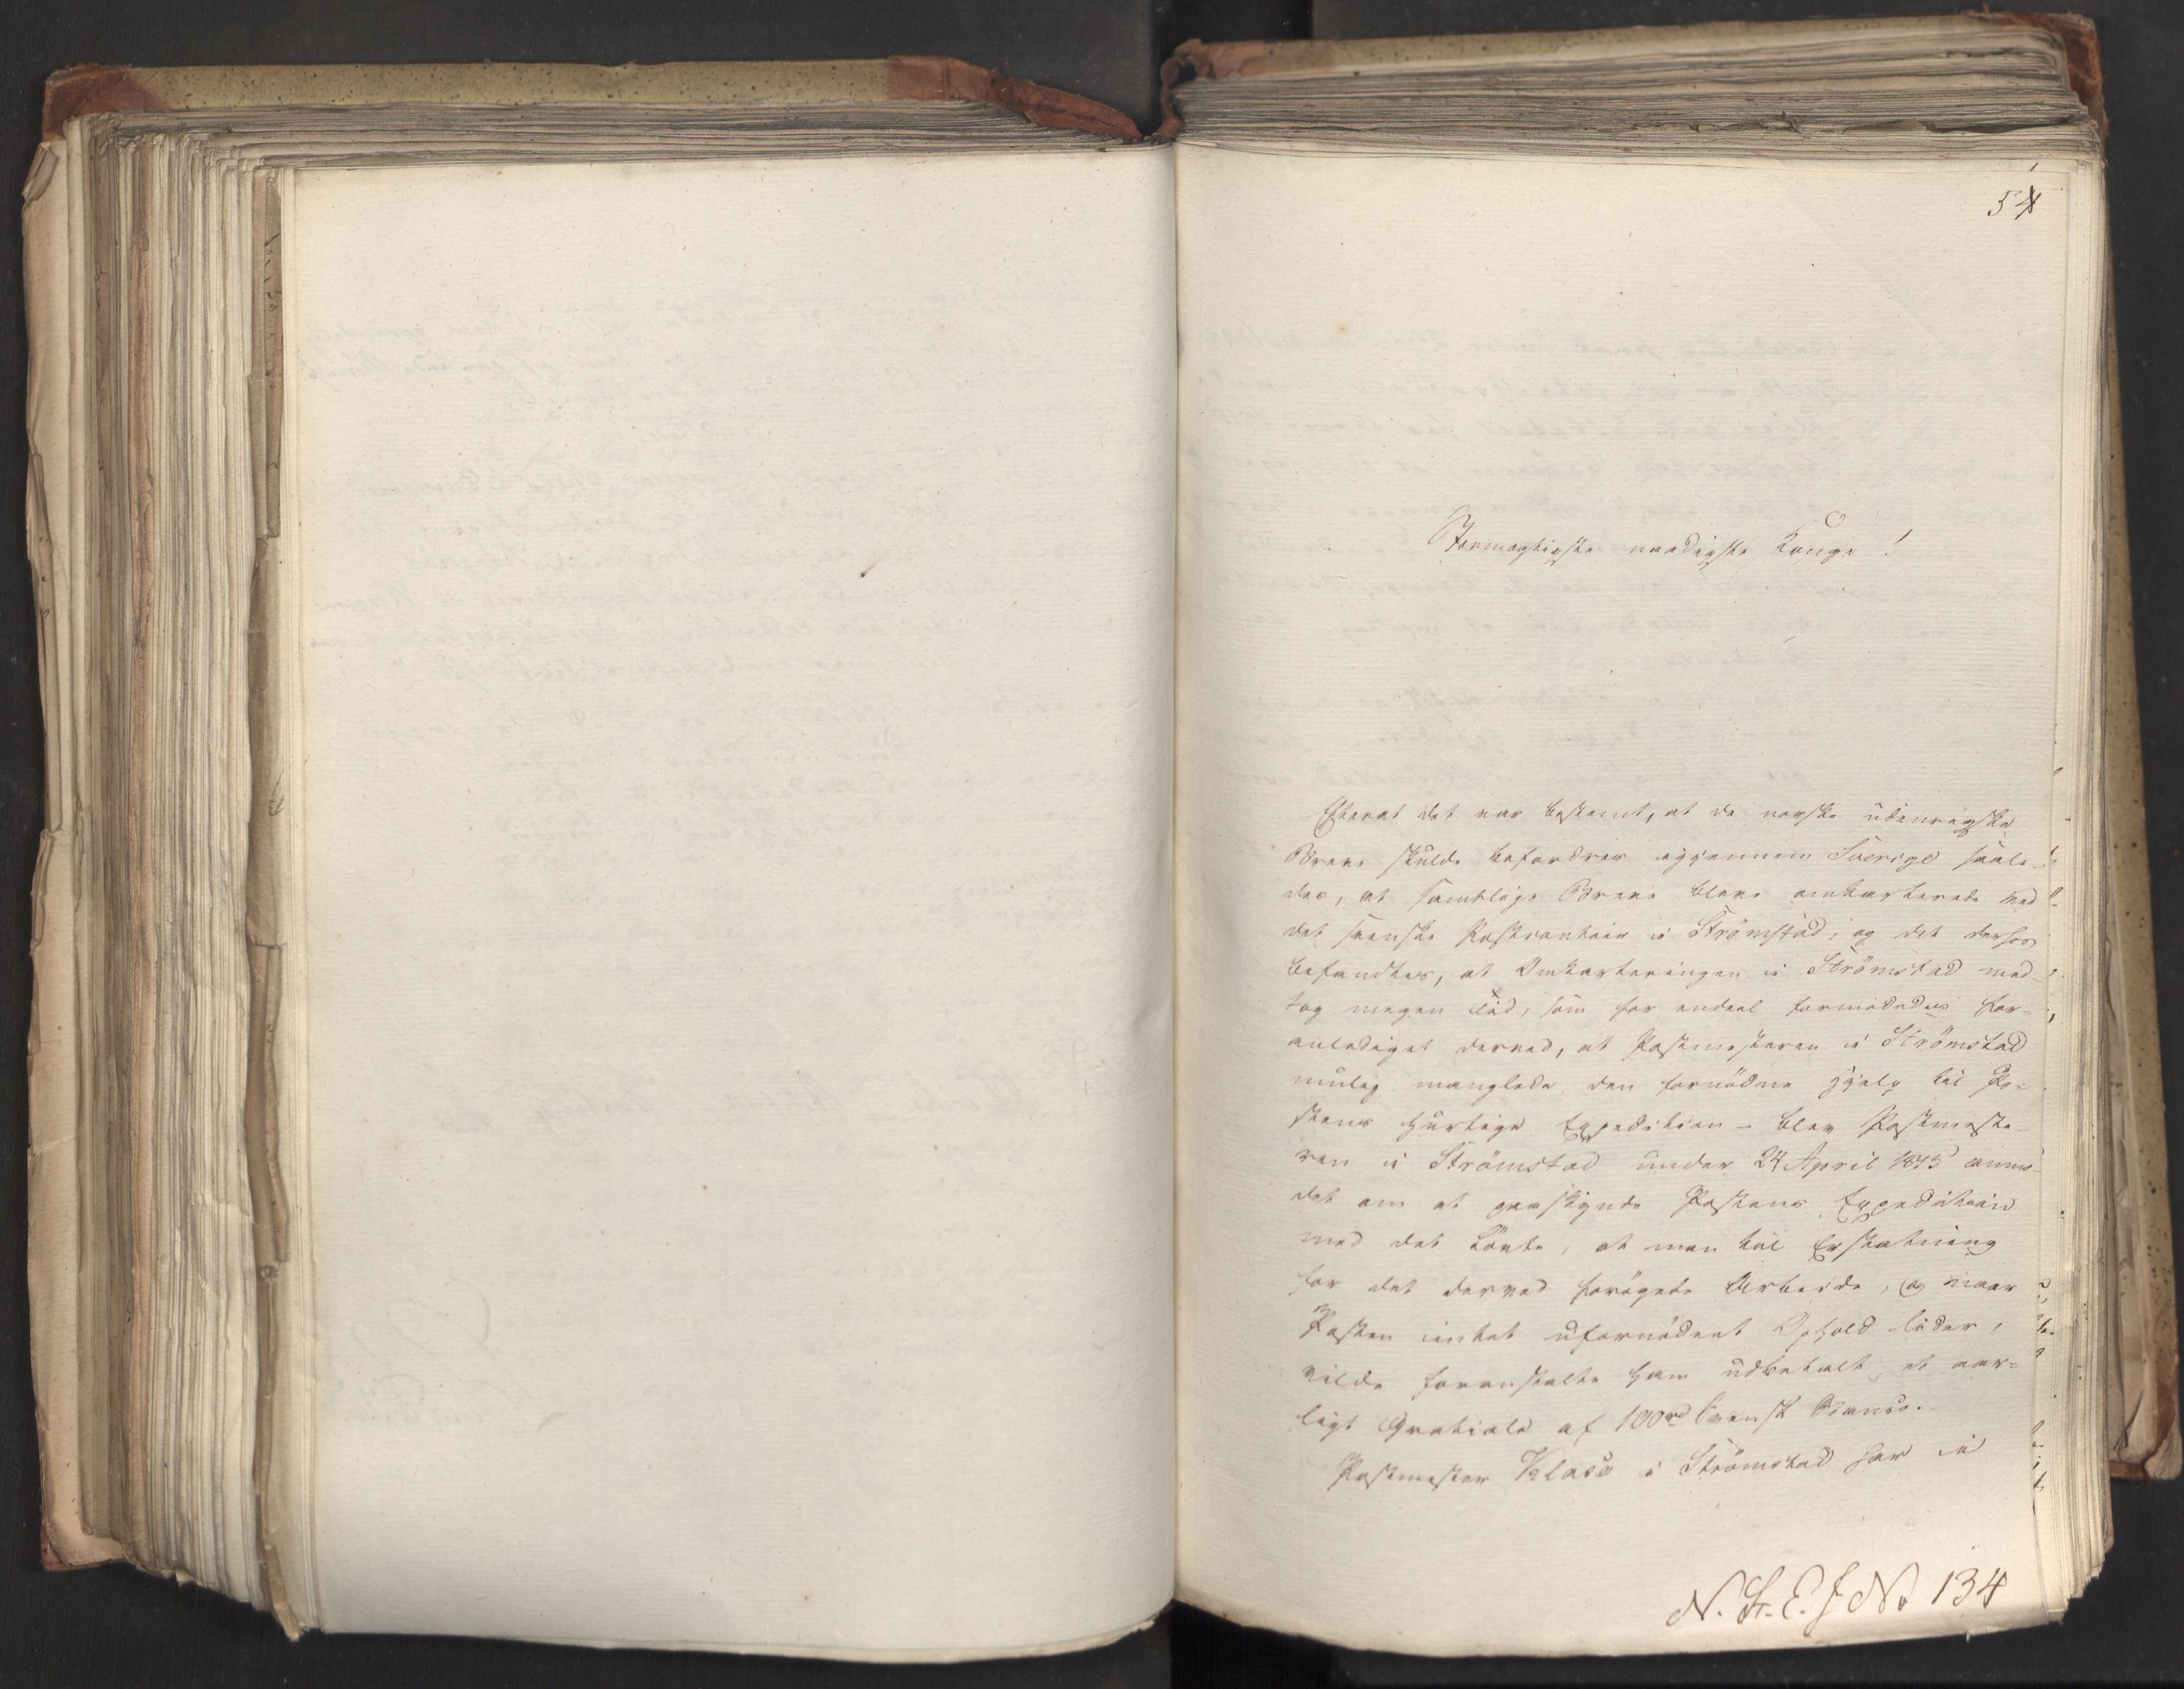 54
Stormægtigste naadigste Konge!
Efterat det var bestemt, at de norske udenrigske
Breve skulde befordres igjennem Sverige saale-
des, at samtlige Breve bleve omkarterede ved
det svenske Postcontoir i Strömstad; og det derhos
befandtes, at Omkarteringen i Strömstad med-
tog megen Tid, som for endeel formodedes for-
anlediget derved, at Postmesteren i Strömstad
muelig manglede den fornödne Hjelp til Po-
stens hurtige Expedition - blev Postmeste-
ren i Strömstad under 24 April 1815 anmo-
det om at paaskynde Postens Expedition
med det Löfte, at man til Erstatning
for det derved forögede Arbeide, og naar
Posten intet ufornödent Ophold lider,
vilde foranstalte ham udbetalt et aar-
ligt Gratiale af 100 rd Svensk Banco.-
Postmester Klase i Strömstad har in
N. St. E. J No 134